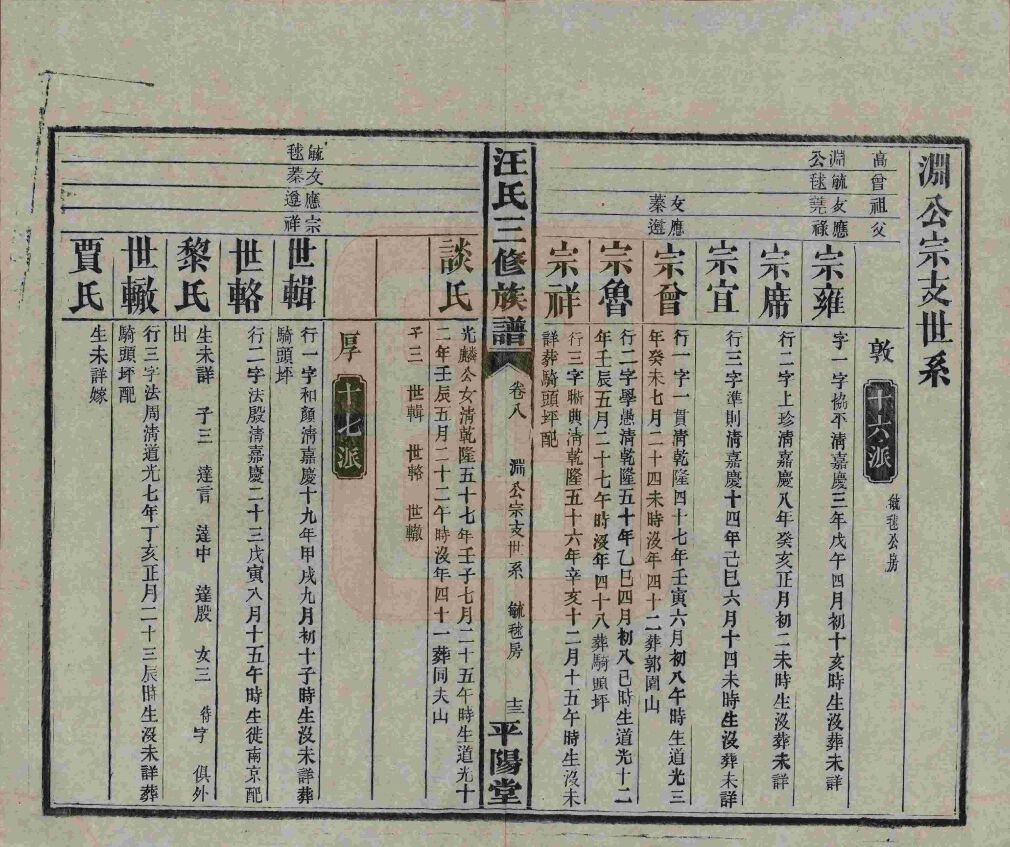 淵公宗支世系
高曾祖父
敦 十六派 毓毬公房
淵毓友應
公毬蕘祿
宗雍 字一字協丕淸嘉慶三年戊午四月初十亥時生沒葬未詳
宗席 行二字上珍淸嘉慶八年癸亥正月初二未時生沒葬未詳
宗宜 行三字準則淸嘉慶十四年己巳六月十四未時生沒葬未詳
友應
蓁遴
宗曾 行一字一貫淸乾隆四十七年壬寅六月初八午時生道光三
年癸未七月二十四未時沒年四十二葬郭園山
宗魯 行二字學愚淸乾隆五十年乙巳四月初八巳時生道光十二
年壬辰五月二十七午時沒年四十八葬騎頭坪
宗祥 行三字晰典淸乾隆五十六年辛亥十二月十五午時生沒未
詳葬騎頭坪配
汪氏三修族譜 卷八 淵公宗支世系 毓毬房 十三 平陽堂
談氏 光麟公女淸乾隆五十七年壬子七月二十五午時生道光十
二年壬辰五月二十二午時沒年四十一葬同夫山
子三 世輯 世輅 世轍
厚 十七派
毓友應宗
毬蓁遴祥
世輯 行一字和顏淸嘉慶十九年甲戌九月初十子時生沒未詳葬
騎頭坪
世輅 行二字法殷淸嘉慶二十三戊寅八月十五午時生徙南京配
黎氏 生未詳 子三 達言 達中 達殷 女三 待字 俱外
出
世轍 行三字法周淸道光七年丁亥正月二十三辰時生沒未詳葬
騎頭坪配
賈氏 生未詳嫁